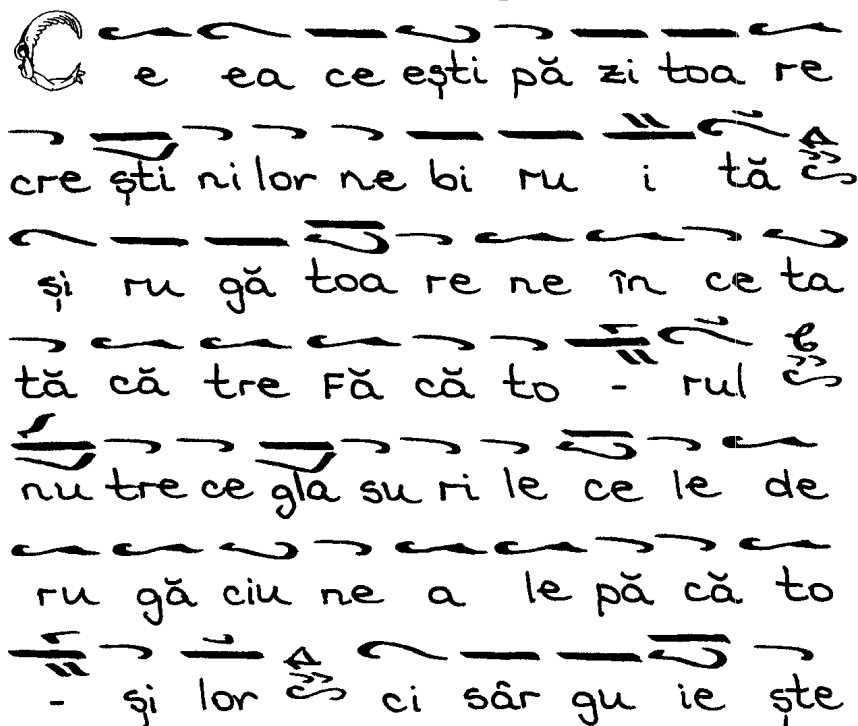 C e ea ce ești pă zi toa re
cre ști ni lor ne bi ru i tă
și ru gă toa re ne în ce ta
tă că tre Fă că to - rul
nu tre ce gla su ri le ce le de
ru gă ciu ne a le pă că to
- și lor ci sâr gu ie ște